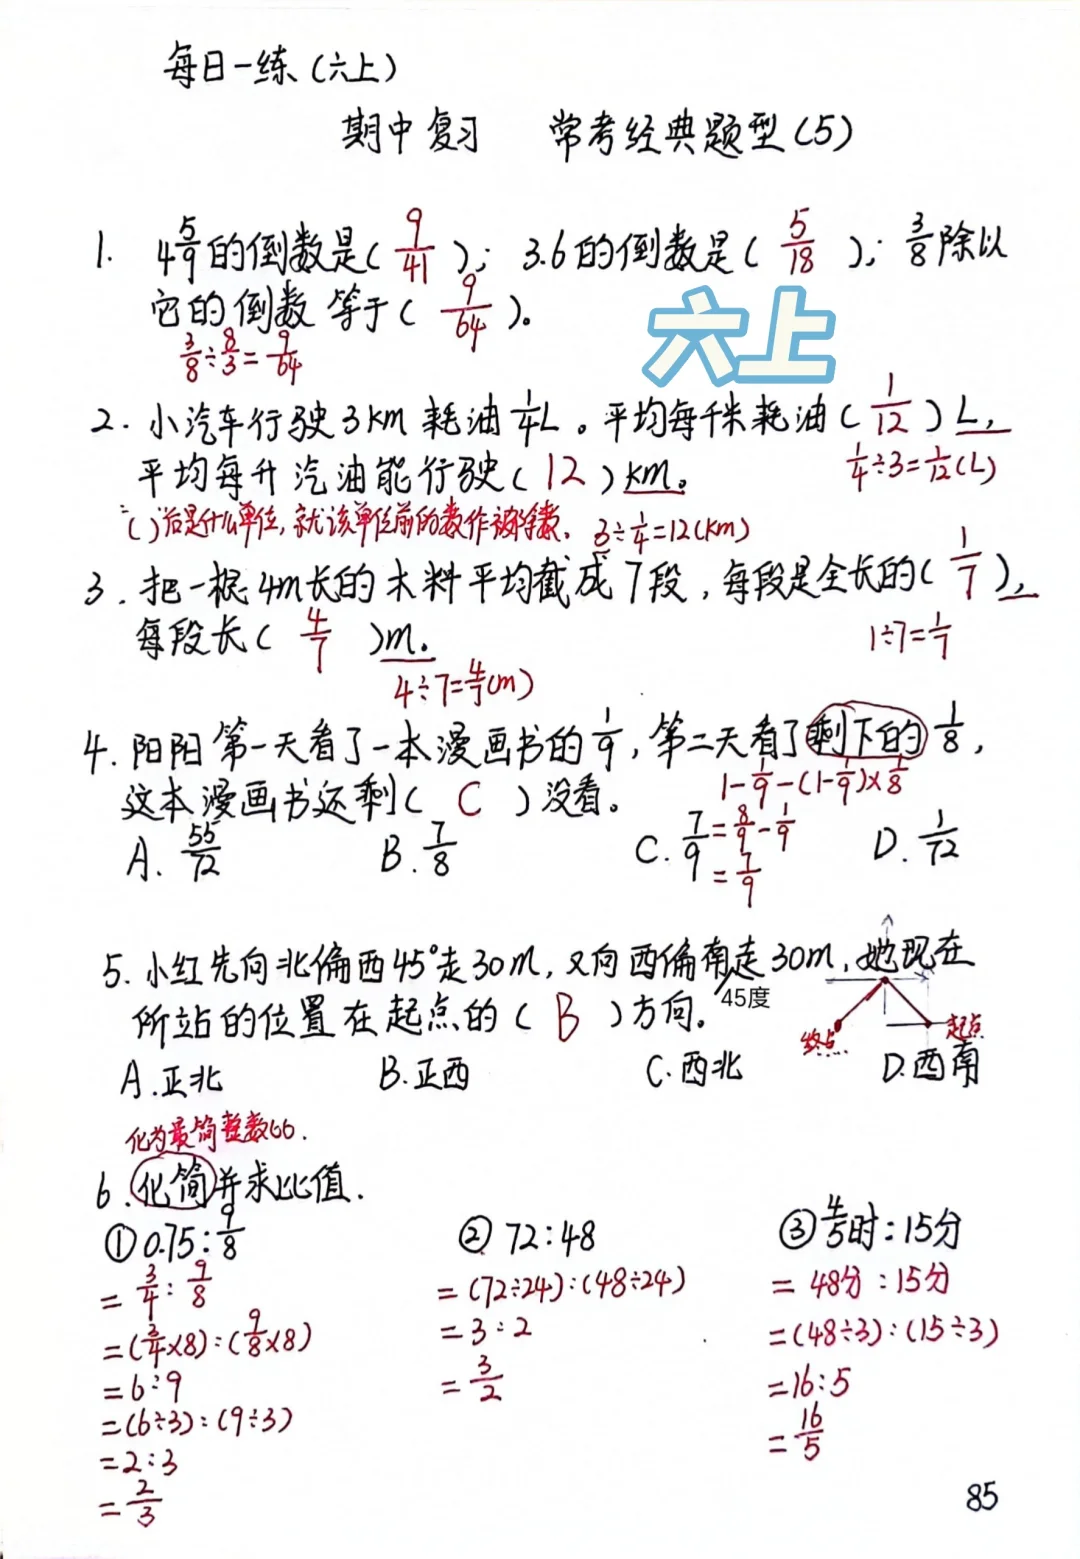 每日一练(六上)
期中复习 常考经典题型(5)
1. 4 5/9的倒数是( 9/41 ); 3.6的倒数是( 5/18 ); 3/8除以
它的倒数等于( 9/64 )。
3/8÷8/3=9/64
六上
2. 小汽车行驶3km耗油1/4L。平均每千米耗油( 1/12 )L,
1/4÷3=1/12(L)
平均每升汽油能行驶( 12 )km。
( )后是什么单位,就该单位前的数作被除数。 3÷1/4=12(km)
3. 把一根4m长的木料平均截成7段,每段是全长的( 1/7 ),
每段长( 4/7 )m。
1÷7=1/7
4÷7=4/7(m)
4. 阳阳第一天看了一本漫画书的1/9,第二天看了剩下的1/8,
1-1/9-(1-1/9)×1/8
这本漫画书还剩( C )没看。
=8/9-1/9
=7/9
A. 55/72 B. 7/8 C. 7/9 D. 1/72
5. 小红先向北偏西45°走30m,又向西偏南走30m,她现在
45度
所站的位置在起点的( B )方向。
终点 起点
A.正北 B.正西 C.西北 D.西南
化为最简整数比.
6. 化简并求比值.
①0.75:9/8 ②72:48 ③4/5时:15分
=3/4:9/8
=(3/4×8):(9/8×8)
=6:9
=(6÷3):(9÷3)
=2:3
=2/3
=(72÷24):(48÷24)
=3:2
=3/2
=48分:15分
=(48÷3):(15÷3)
=16:5
=16/5
85